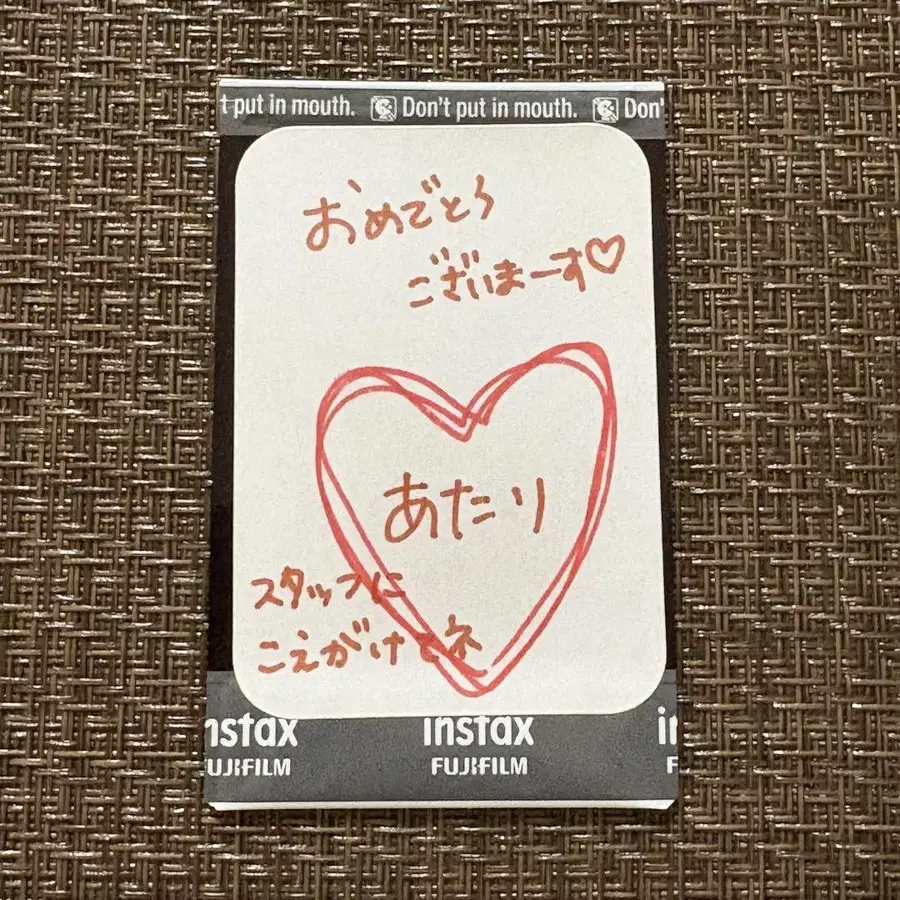 t put in mouth. Don't put in mouth. Don'
おめでとう
ございまーす♡
あたり
スタッフに
こえがけてネ
nstax instax i
UJIFILM FUJIFILM F